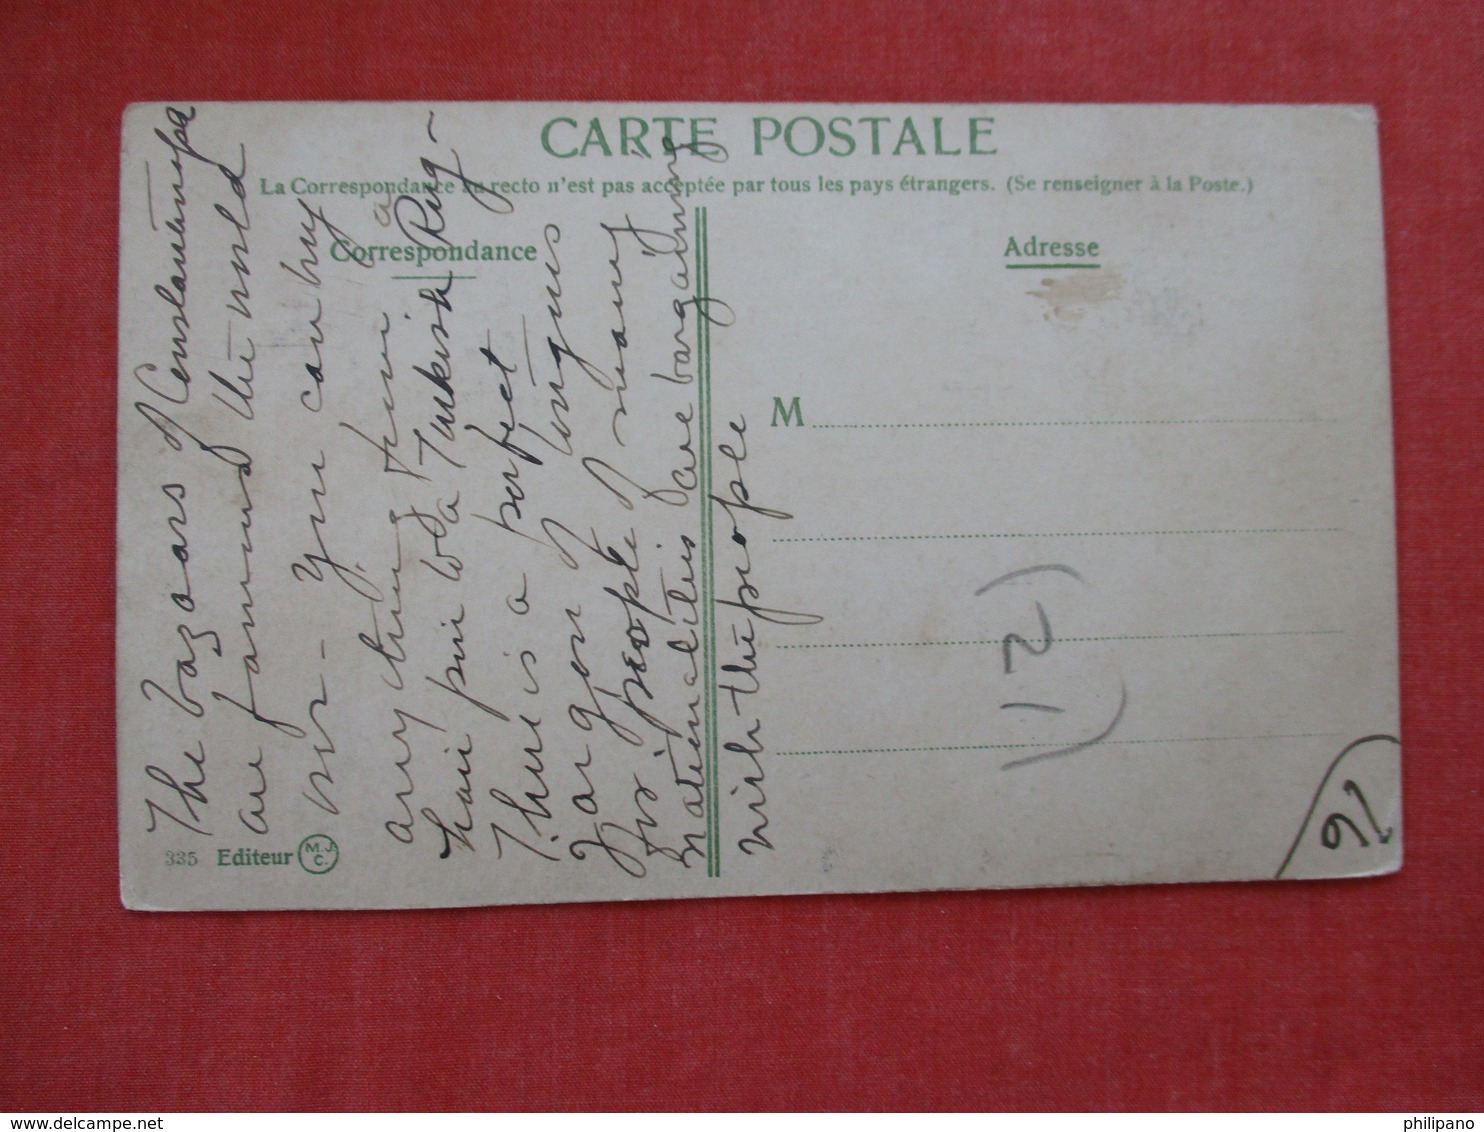 CARTE POSTALE
La Correspondance au recto n'est pas acceptée par tous les pays étrangers. (Se renseigner à la Poste.)
Correspondance
Adresse
M
The bazaars of Constantinople
are famous the world
over - You can buy
anything from a
hair pin to a Turkish Rug -
There is a perfect
jargon of tongues
for people of many
nationalities are bargaining
with the people
(21)
91
335 Editeur M.J.C.
philipano